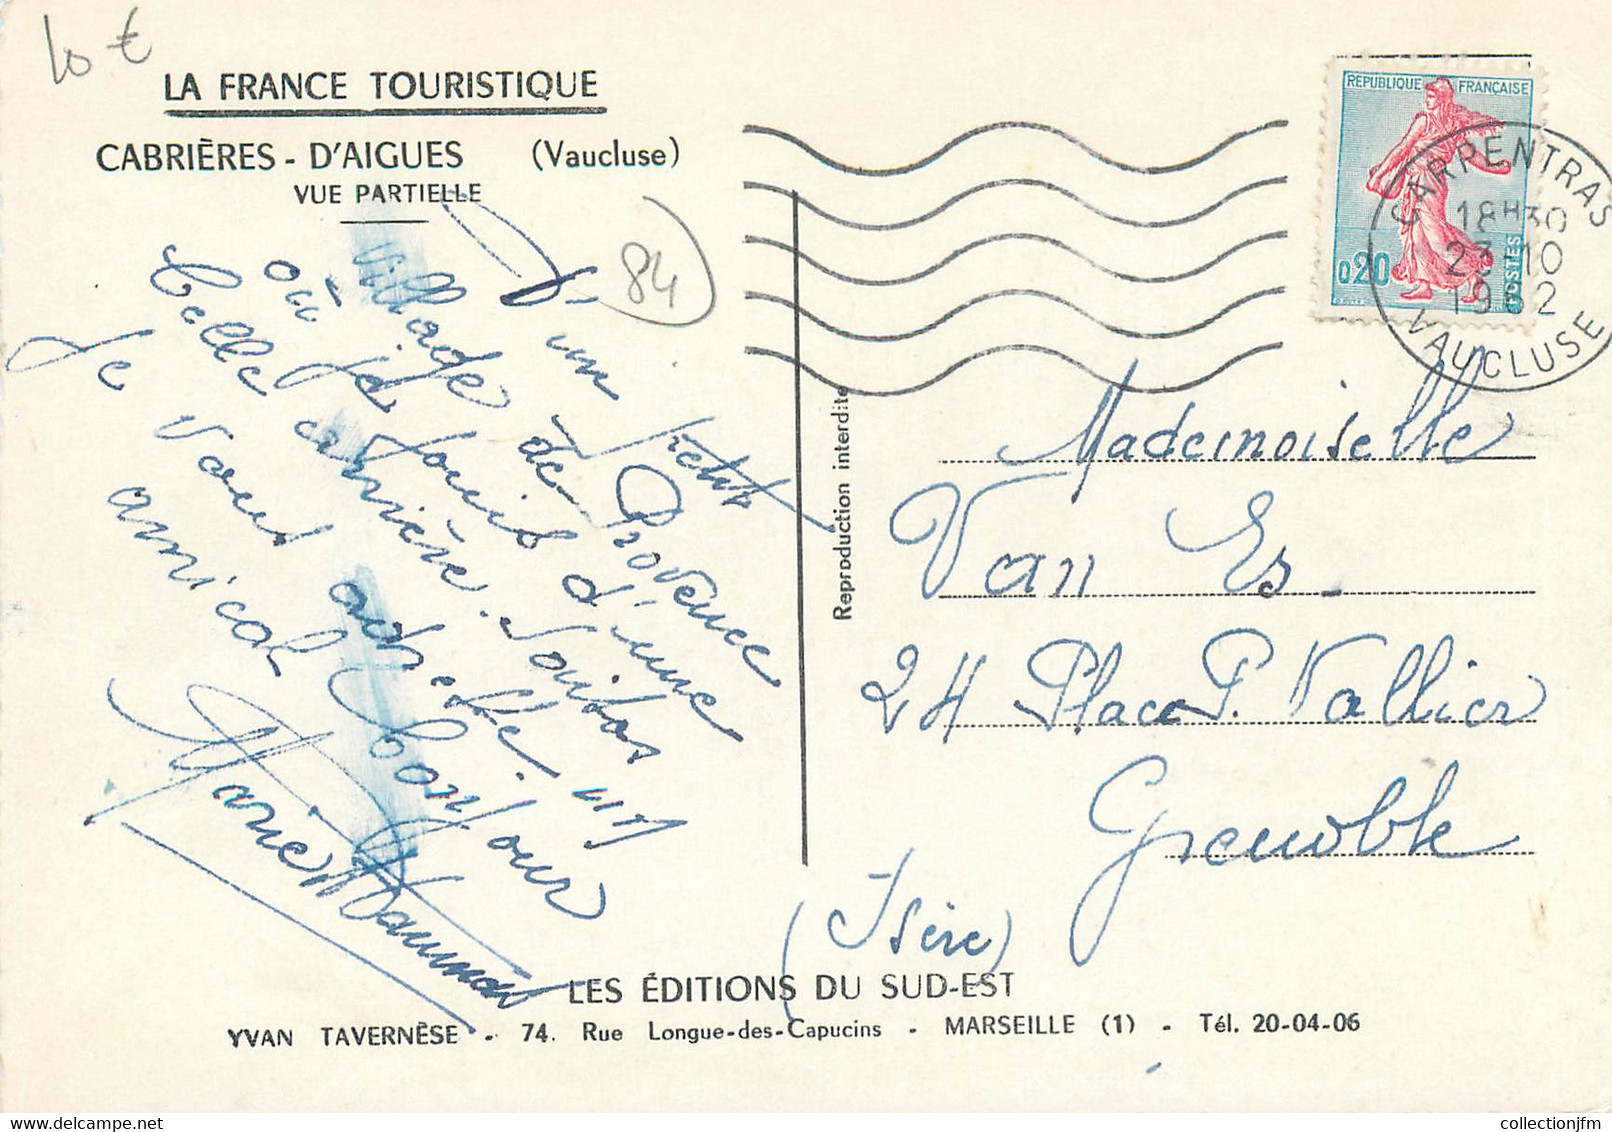 10 €
LA FRANCE TOURISTIQUE
CABRIÈRES - D'AIGUES (Vaucluse)
VUE PARTIELLE
84
D'un petit
village de Provence
où je jouis d'une
belle carrière.
Je vous adresse un
amical bonjour
Marie
Reproduction interdite
REPUBLIQUE FRANÇAISE
0,20
POSTES
CARPENTRAS
18H30
23-10
1962
VAUCLUSE
Mademoiselle
Van Es
24 Place P. Vallier
Grenoble
(Isère)
LES ÉDITIONS DU SUD-EST
YVAN TAVERNÈSE - 74. Rue Longue-des-Capucins - MARSEILLE (1) - Tél. 20-04-06
collectionjfm